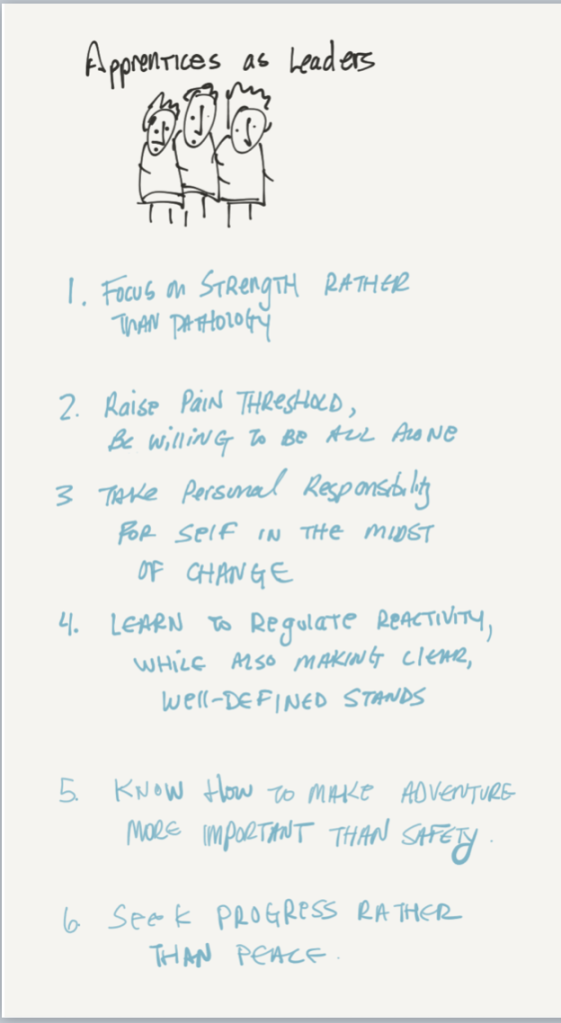 Apprentices as Leaders
1. Focus on Strength Rather
Than Pathology
2. Raise Pain Threshold,
Be willing to be all alone
3 Take Personal Responsibility
For self in the midst
of change
4. Learn to Regulate Reactivity,
while also making clear,
well-defined stands
5. Know How to make adventure
more important than safety.
6 Seek progress rather
than peace.